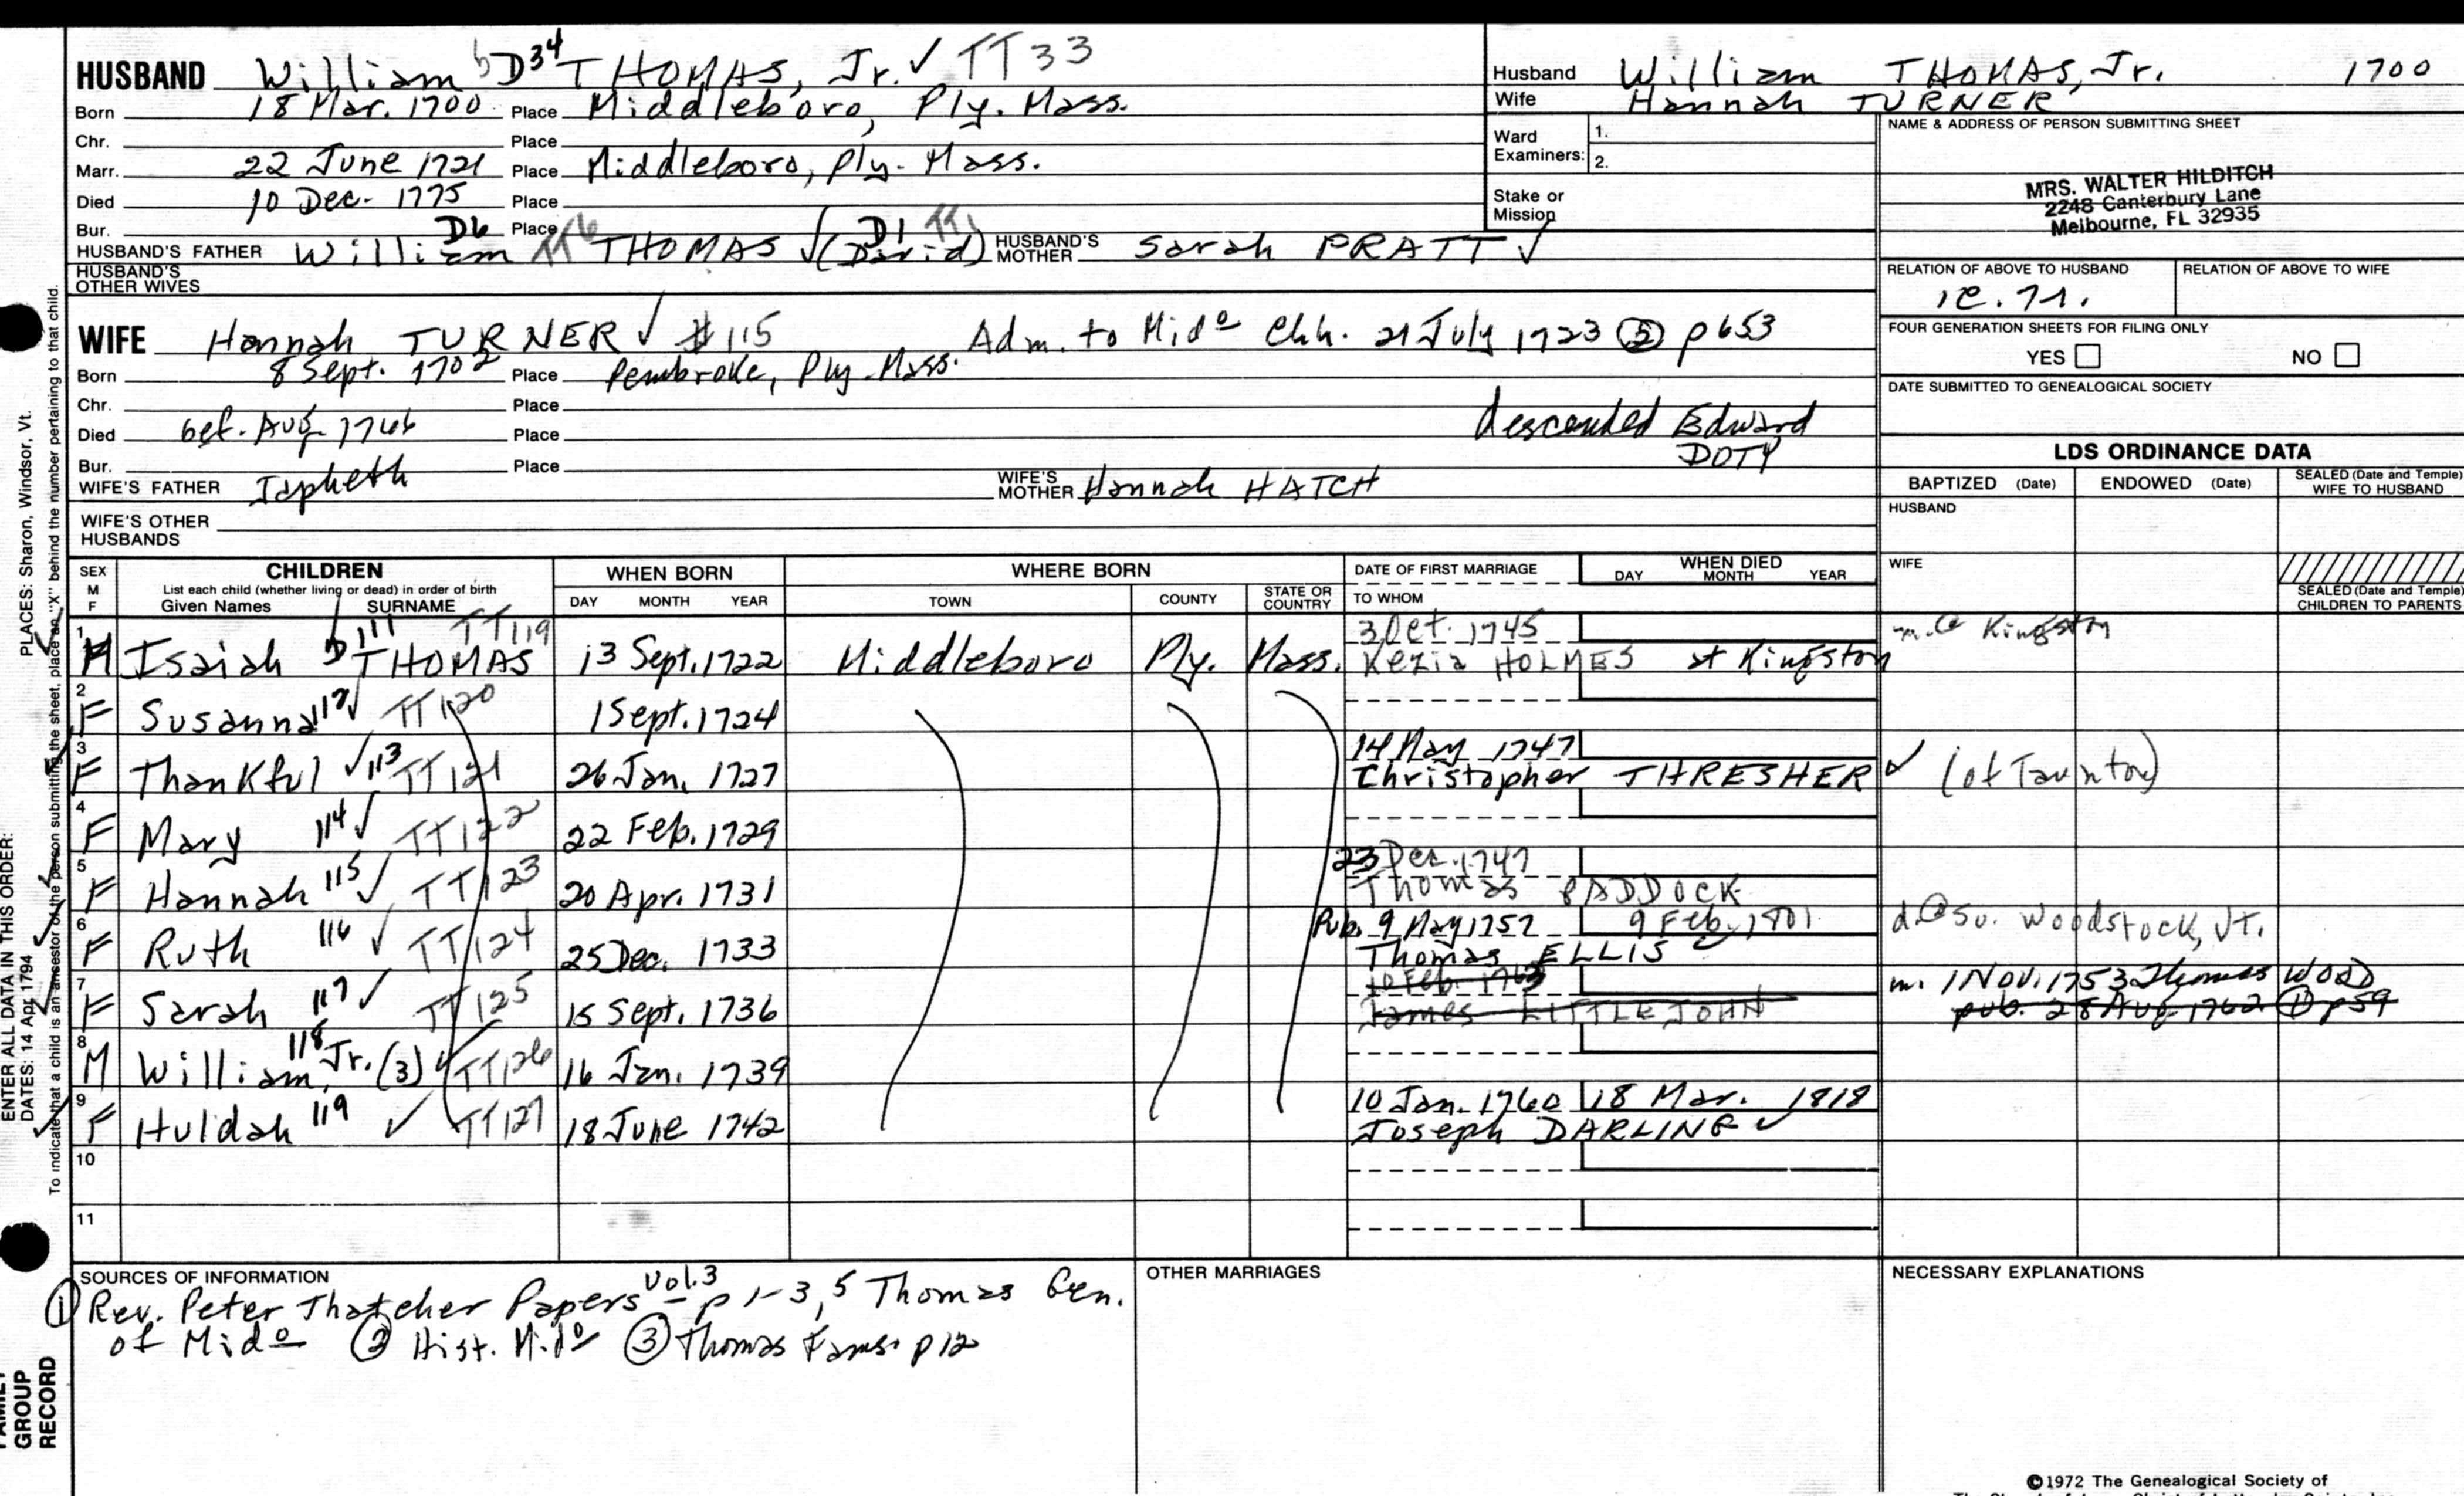 HUSBAND William bD34 THOMAS, Jr. ✓ TT33
Born 18 Mar. 1700 Place Middleboro, Ply. Mass.
Chr. Place
Marr. 22 June 1721 Place Middleboro, Ply. Mass.
Died 10 Dec. 1775 Place
Bur. Place
HUSBAND'S FATHER William D6 TT6 THOMAS ✓ (David) D1 TT1 HUSBAND'S MOTHER Sarah PRATT ✓
HUSBAND'S OTHER WIVES
WIFE Hannah TURNER ✓ #115 Adm. to Mido Chh. 21 July 1723 ② p653
Born 8 Sept. 1702 Place Pembroke, Ply. Mass.
Chr. Place
Died bef. Aug 1766 Place
descended Edward DOTY
Bur. Place
WIFE'S FATHER Japheth WIFE'S MOTHER Hannah HATCH
WIFE'S OTHER HUSBANDS
Husband William THOMAS, Jr. 1700
Wife Hannah TURNER
Ward Examiners: 1.
2.
Stake or Mission
NAME & ADDRESS OF PERSON SUBMITTING SHEET
MRS. WALTER HILDITCH
2248 Canterbury Lane
Melbourne, FL 32935
RELATION OF ABOVE TO HUSBAND RELATION OF ABOVE TO WIFE
FOUR GENERATION SHEETS FOR FILING ONLY
YES NO
DATE SUBMITTED TO GENEALOGICAL SOCIETY
LDS ORDINANCE DATA
BAPTIZED (Date) ENDOWED (Date) SEALED (Date and Temple) WIFE TO HUSBAND
HUSBAND
WIFE
SEALED (Date and Temple) CHILDREN TO PARENTS
SEX M F CHILDREN List each child (whether living or dead) in order of birth Given Names SURNAME
WHEN BORN DAY MONTH YEAR
WHERE BORN TOWN COUNTY STATE OR COUNTRY
DATE OF FIRST MARRIAGE TO WHOM
WHEN DIED DAY MONTH YEAR
1 M Isaiah D111 TT119 THOMAS 13 Sept. 1722 Middleboro Ply. Mass. 3 Oct. 1745 Kezia HOLMES at Kingston m. @ Kingston
2 F Susanna 112 ✓ TT120 1 Sept. 1724
3 F Thankful ✓ 113 TT121 26 Jan. 1727 14 May 1747 Christopher THRESHER ✓ (of Taunton)
4 F Mary 114 ✓ TT122 22 Feb. 1729
5 F Hannah 115 ✓ TT123 20 Apr. 1731 23 Dec. 1747 Thomas PADDOCK
6 F Ruth 116 ✓ TT124 25 Dec. 1733 Pub. 9 May 1757 Thomas ELLIS 9 Feb. 1801 d. @ So. Woodstock, Vt.
7 F Sarah 117 ✓ TT125 15 Sept. 1736 10 Feb. 1763 James LITTLEJOHN m. 1 Nov. 1753 Thomas WOOD
pub. 28 Aug 1762 ① p59
8 M William, Jr. (3) 118 ✓ TT126 16 Jan. 1739
9 F Huldah 119 ✓ TT127 18 June 1742 10 Jan. 1760 Joseph DARLING ✓ 18 Mar. 1818
10
11
SOURCES OF INFORMATION
① Rev. Peter Thatcher Papers Vol. 3 p 1-3, 5 Thomas Gen.
of Mido ② Hist. Mido ③ Thomas Fams. p 12
OTHER MARRIAGES
NECESSARY EXPLANATIONS
©1972 The Genealogical Society of
PLACES: Sharon, Windsor, Vt.
ENTER ALL DATA IN THIS ORDER:
DATES: 14 Apr 1794
To indicate that a child is an ancestor of the person submitting the sheet, place an "X" behind the number pertaining to that child.
GROUP
RECORD